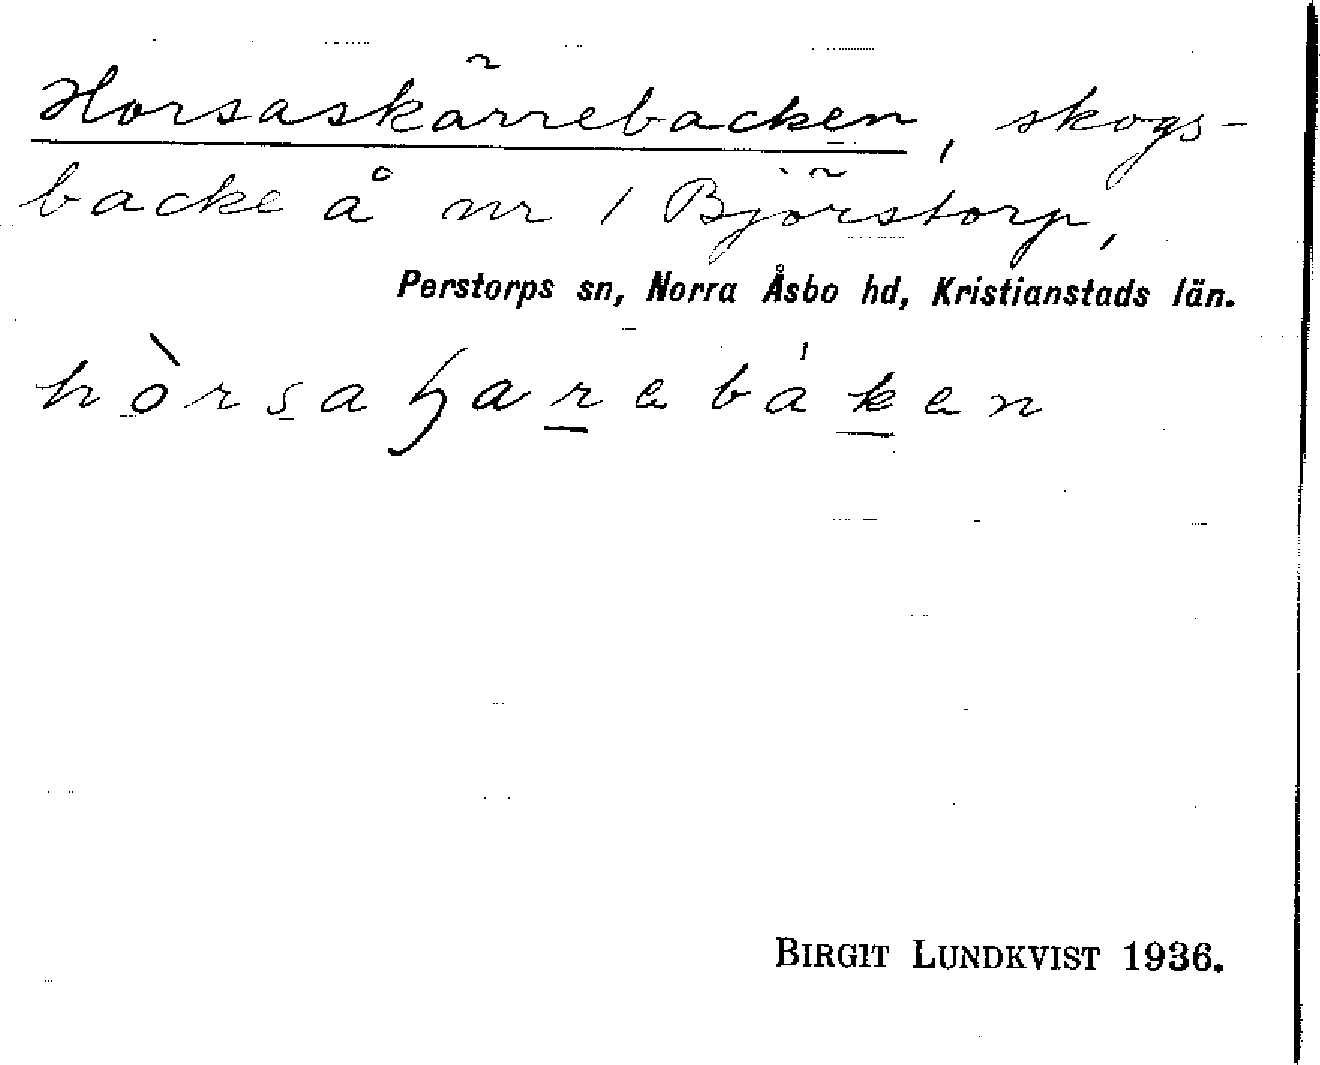 Horsaskärrebacken, skogs-
backe å nr 1 Björstorp,
Perstorps sn, Norra Åsbo hd, Kristianstads län.
hòrsaꜧarebáken
BIRGIT LUNDKVIST 1936.